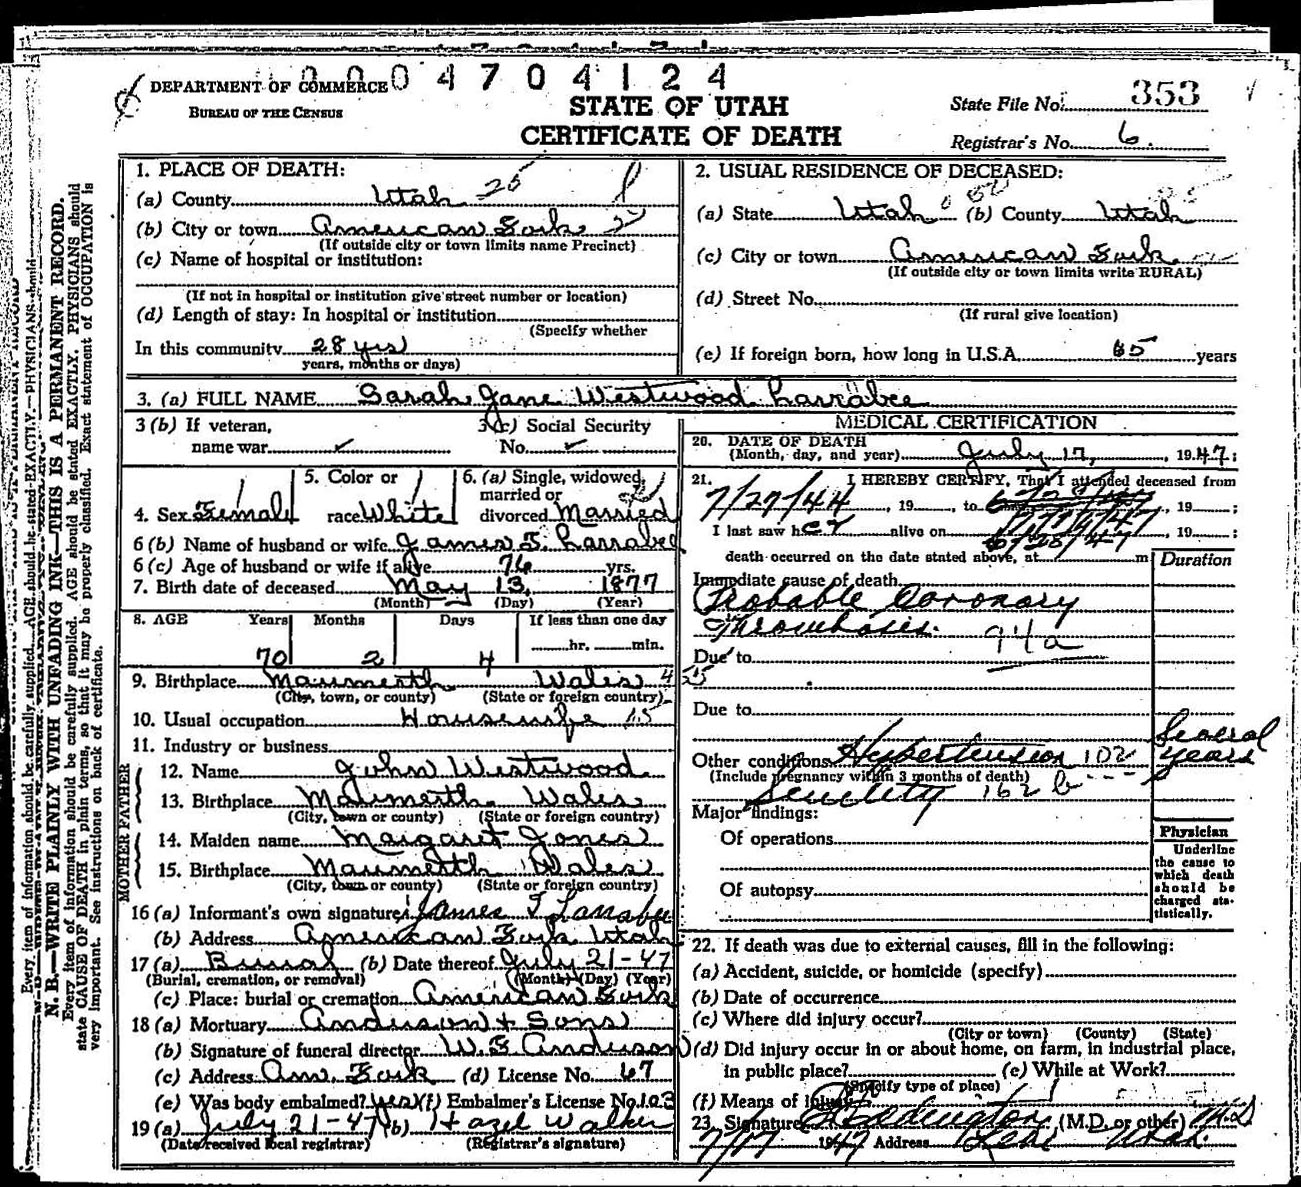 0004704124
DEPARTMENT OF COMMERCE
BUREAU OF THE CENSUS
STATE OF UTAH
CERTIFICATE OF DEATH
State File No. 353
Registrar's No. 6.
N. B.—WRITE PLAINLY WITH UNFADING INK—THIS IS A PERMANENT RECORD.
Every item of information should be carefully supplied. AGE should be stated EXACTLY. PHYSICIANS should
state CAUSE OF DEATH in plain terms, so that it may be properly classified. Exact statement of OCCUPATION is
very important. See instructions on back of certificate.
1. PLACE OF DEATH:
(a) County Utah 25
(b) City or town American Fork
(If outside city or town limits name Precinct)
(c) Name of hospital or institution:
(If not in hospital or institution give street number or location)
(d) Length of stay: In hospital or institution
(Specify whether
In this community 28 yrs
years, months or days)
2. USUAL RESIDENCE OF DECEASED:
(a) State Utah (b) County Utah
(c) City or town American Fork
(If outside city or town limits write RURAL)
(d) Street No.
(If rural give location)
(e) If foreign born, how long in U.S.A. 65 years
3. (a) FULL NAME Sarah Jane Westwood Larrabee
3 (b) If veteran,
name war
3 (c) Social Security
No.
4. Sex Female
5. Color or
race White
6. (a) Single, widowed,
married or
divorced Married
6 (b) Name of husband or wife James T. Larrabee
6 (c) Age of husband or wife if alive 76 yrs.
7. Birth date of deceased May 13, 1877
(Month) (Day) (Year)
8. AGE Years Months Days If less than one day
70 2 4 hr. min.
9. Birthplace Wales
(City, town, or county) (State or foreign country)
10. Usual occupation Housewife
11. Industry or business
FATHER
12. Name John Westwood
13. Birthplace Wales
(City, town or county) (State or foreign country)
MOTHER
14. Maiden name Margaret Jones
15. Birthplace Wales
(City, town or county) (State or foreign country)
16 (a) Informant's own signature James T Larrabee
(b) Address American Fork Utah
17 (a) Burial (b) Date thereof July 21-47
(Burial, cremation, or removal) (Month) (Day) (Year)
(c) Place: burial or cremation American Fork
18 (a) Mortuary Anderson & Sons
(b) Signature of funeral director W. E. Anderson
(c) Address Am. Fork (d) License No. 67
(e) Was body embalmed? yes (f) Embalmer's License No. 103
19 (a) July 21-47 (b) Hazel Walker
(Date received local registrar) (Registrar's signature)
MEDICAL CERTIFICATION
20. DATE OF DEATH
(Month, day, and year) July 17, 1947;
21. I HEREBY CERTIFY, That I attended deceased from
7/27/44, 19, to 19;
I last saw her alive on 19;
death occurred on the date stated above, at m
Duration
Immediate cause of death
Probable Coronary
Thrombosis. 94a
Due to
Due to
Other conditions Hypertension 102 Several years
(Include pregnancy within 3 months of death)
Senility 162 b
Major findings:
Of operations
Of autopsy
Physician
Underline
the cause to
which death
should be
charged sta-
tistically.
22. If death was due to external causes, fill in the following:
(a) Accident, suicide, or homicide (specify)
(b) Date of occurrence
(c) Where did injury occur?
(City or town) (County) (State)
(d) Did injury occur in or about home, on farm, in industrial place,
in public place? (e) While at Work?
(Specify type of place)
(f) Means of injury
23. Signature (M.D. or other) M.D
7/17 1947 Address Lehi Utah.